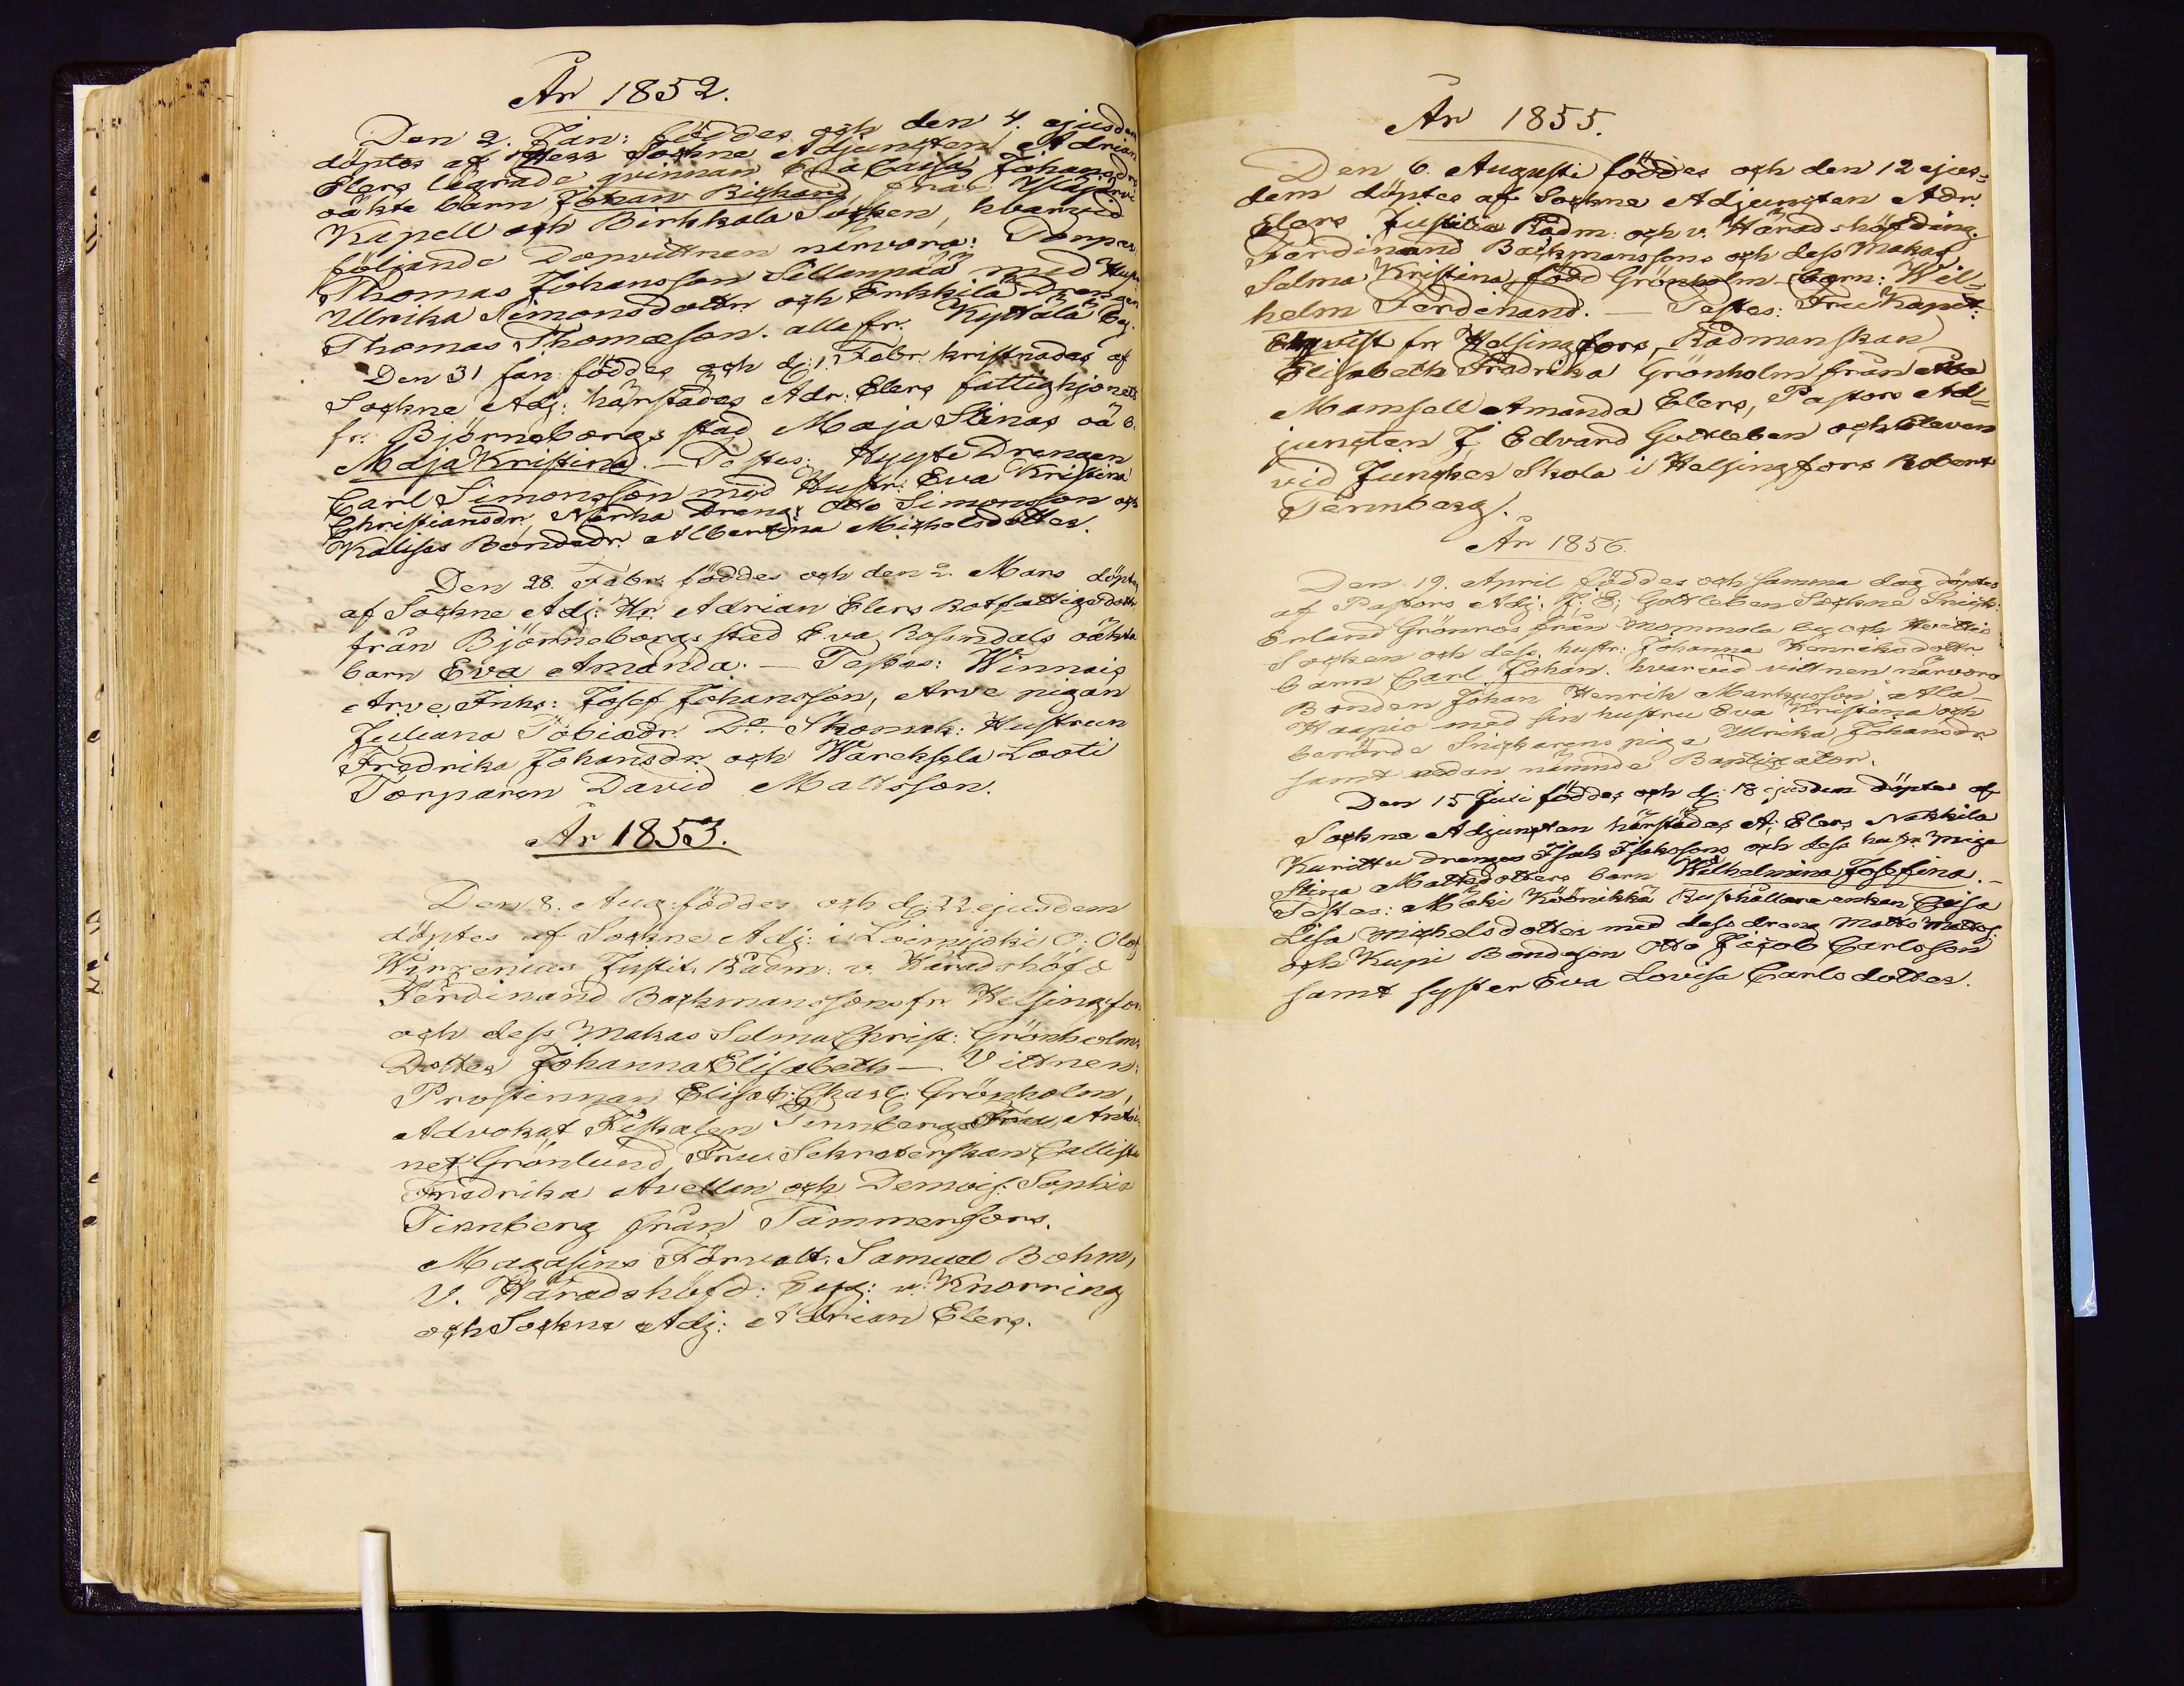 År 1852.
Den 2. Jan: föddes och den 4. ejusdem
döptes af Sockne Adjuncten Adrian
Elers lägrade qvinnan Eva Caisa Johansdrs
oäkta barn Johan Richard från Ylöjärvi
Kapell och Birkkala Socken, hvarvid
följande dopvittnen närvoro: Torpar.
Thomas Johansson Sillanpää med Hustr.
Ulrika Simonsdotr. och Erkkilä Drengen
Thomas Thomasson. alle fr. Kyttälä by.
Den 31 Jan: föddes och d: 1. Febr. kristnades af
Sockne Adj: härstädes Adr: Elers fattighjonets
fr. Björneborgs stad Maja Stinas oä b.
Maja Kristina. — Testes: Hyyte Drengen
Carl Simonsson med Hustr: Eva Kristina
Christiansdr, Närka Dreng. Otto Simonsson och
Kalises Bondedr. Albertina Michelsdotter.
Den 28. Febr. föddes och den 2. Mars döptes
af Sockne Adj: Hr. Adrian Elers Rotfattigedottr
från Björneborgs stad Eva Rosindals oäkta
barn Eva Amanda. — Testes: Winnais
Arve Inhs: Josef Johansson, Arve pigan
Juliana Tobiædr. Do. Skomak: Hustrun
Fredrika Johansdr. och Wareksela Looti
Torparen David Mattsson.
År 1853.
Den 8. Aug: föddes och d: 22. ejusdem
döptes af Sockne Adj: i Loimijoki O: Olof
Justit. Rådm: v. Häradshöfd
Ferdinand Backmanssons fr. Helsingfor.
och dess Makas Selma Christ: Grönholms
Dotter Johanna Elisabeth — Vittnen:
Prostinnan Elisab: Charl: Grönholm,
Advokat Fiskalen Tennberg, Fru Antoi
net Grönlund, Fru Sekreterskan Callista
Fredrika Avellan och Demois. Sophia
Tennberg från Tammerfors.
Magasins Förvalt. Samuel Boehm,
V. Häradshöfd: Eug: v: Knorring
och Sockne Adj: Adrian Elers.
År 1855.
Den 6. Augusti föddes och den 12 ejus=
dem döptes af Sockne Adjuncten Adr.
Elers Justitiæ Rådm: och v. Häradshöfding.
Ferdinand Backmanssons och dess Makas
Selma Kristina, född Grönholm barn: Wil=
helm Ferdinand. — Testes: Fru Kapit:
fr Helsingfors, Rådmanskan
Elisabeth Fredrika Grönholm från Åbo
Mamsell Amanda Elers, Pastors Ad=
juncten J. Edvard Gottleben och Eleven
vid Junckes Skola i Helsingfors Robert
Tennberg.
År 1856.
Den 19. April föddes och samma dag döptes
af Pastors Adj: J: E: Gottleben Sockne Snick:
Erland Grönros från Mommola by och Hvittis
Socken och dess hustr: Johanna Henriksdottr
barn Carl Johan. hvarvid vittnen närvoro
Bonden Johan Henrik Markusson Ala
Haapio med sin hustru Eva Kristina och
berörde Snickarens piga Ulrika Johansdr
samt nämnde Baptizator.
Den 15 Juli föddes och d: 18 ejusdem döptes af
Sockne Adjuncten härstädes A: Elers Nakkila
Kurittu drenges Isak Isakssons och dess hustr Maja
Stina Mattsdotters barn Wilhelmina Josefina. —
Testes: Mäki Köönikkä Rusthållare enkan Caisa
Lisa Michelsdotter med dess dreng Matts Mattss.
och Kupi Bondeson Otto Jacob Carlsson
samt syster Eva Lovisa Carlsdotter.